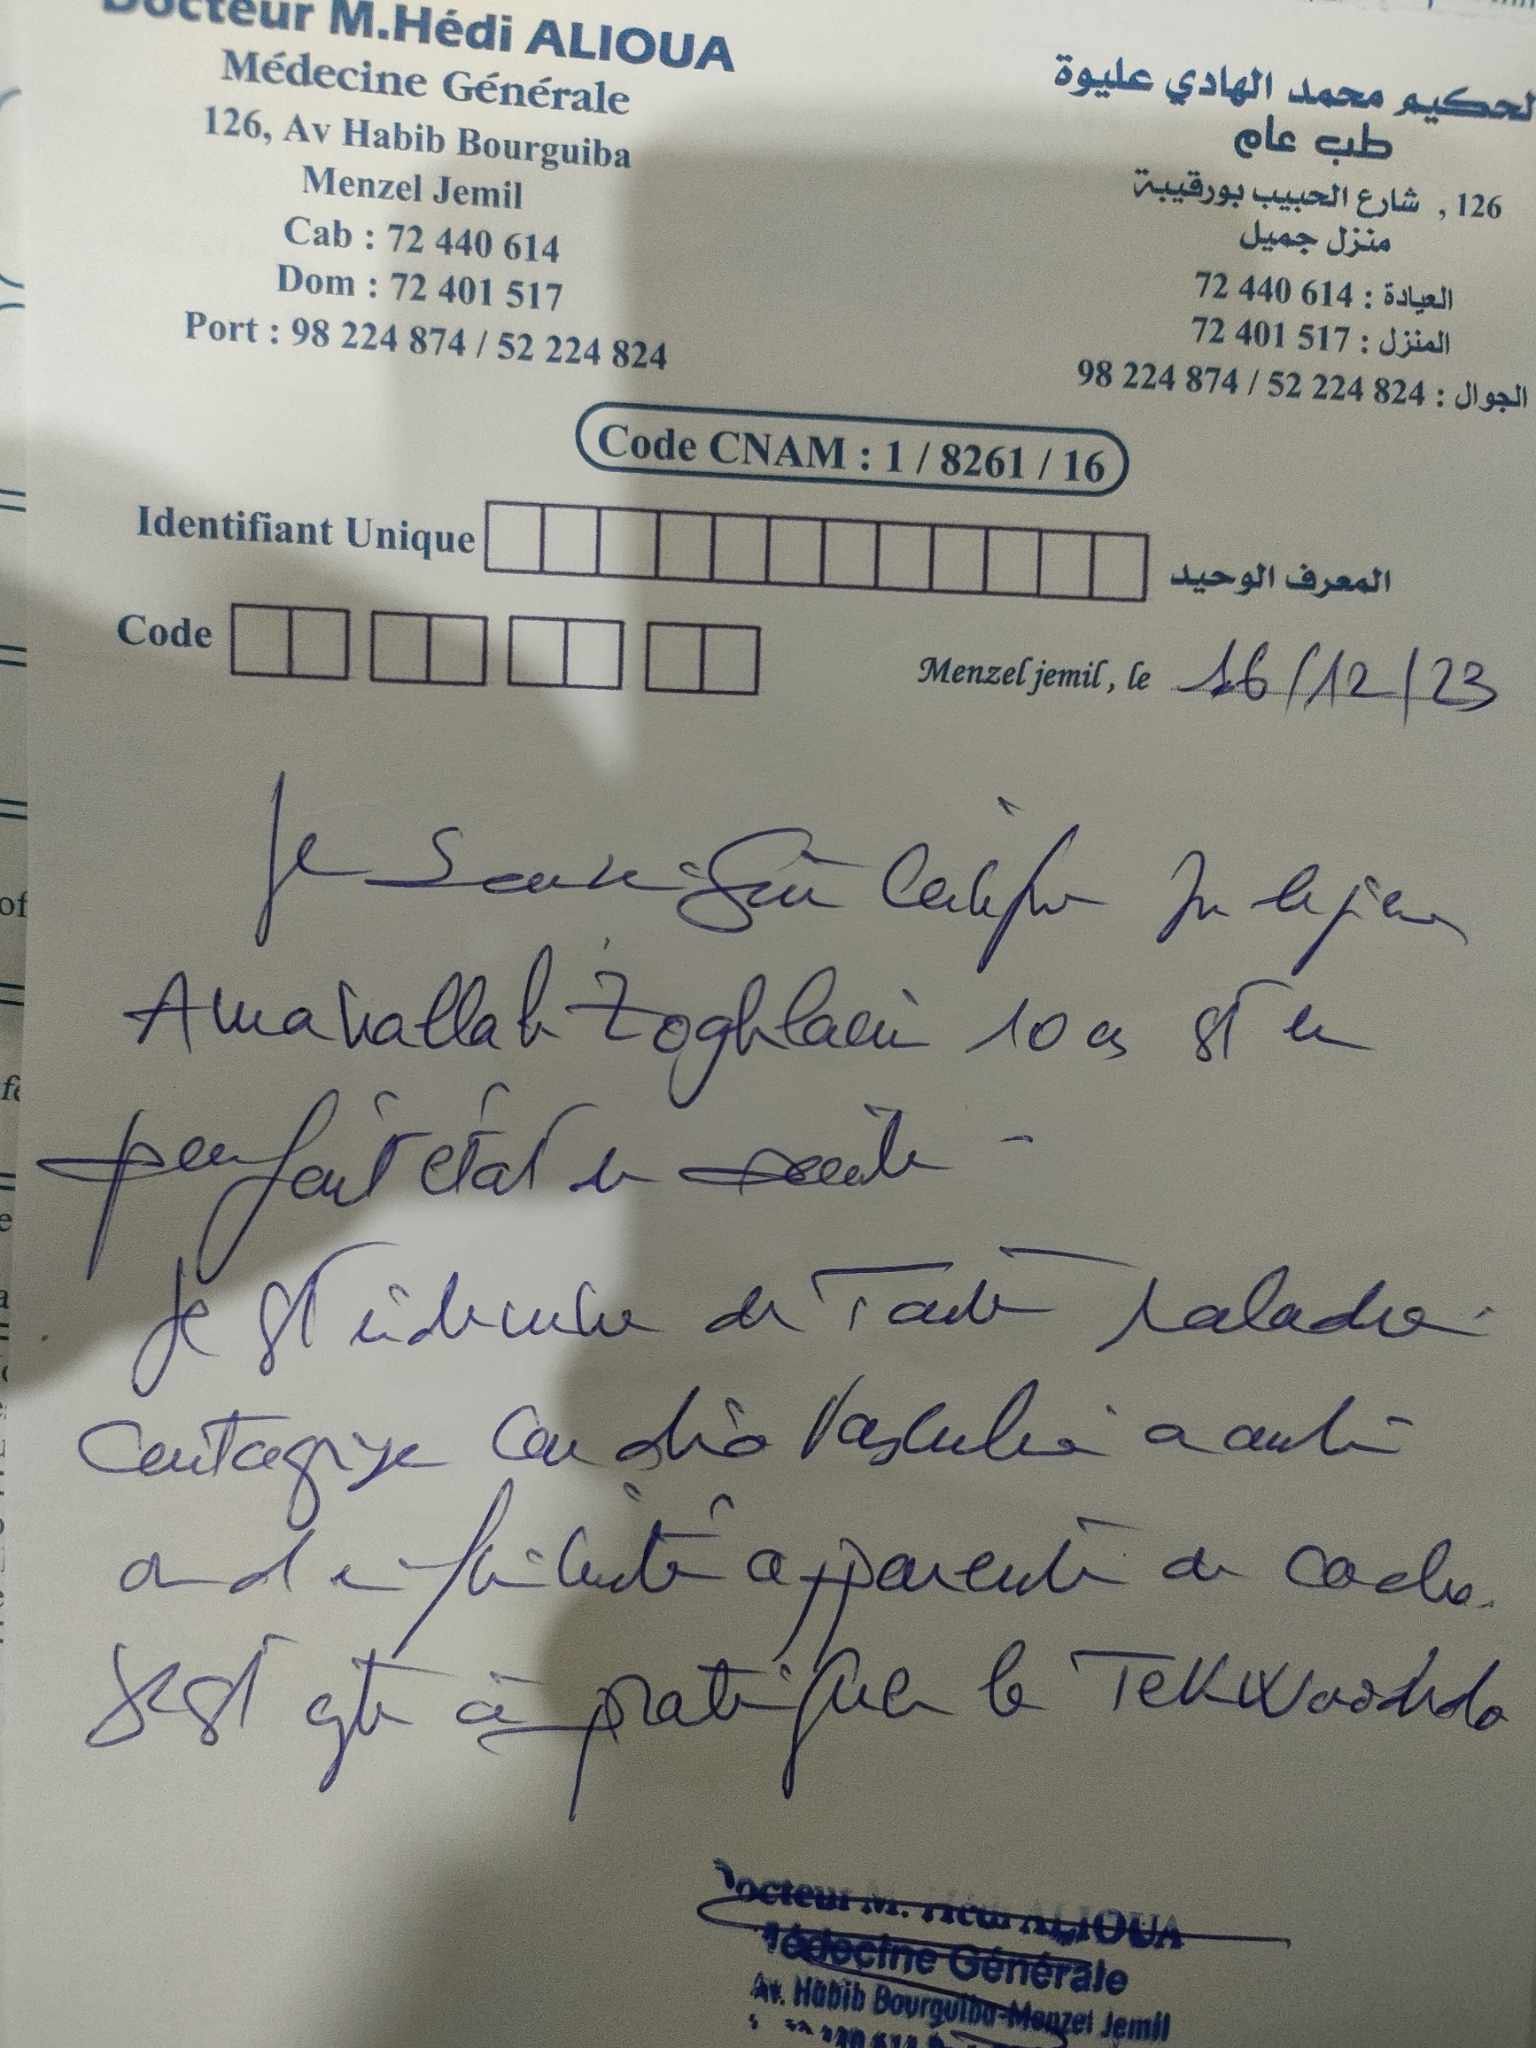 Docteur M.Hédi ALIOUA
Médecine Générale
126, Av Habib Bourguiba
Menzel Jemil
Cab : 72 440 614
Dom : 72 401 517
Port : 98 224 874 / 52 224 824
لحكيم محمد الهادي عليوة
طب عام
126 , شارع الحبيب بورقيبة
منزل جميل
العيادة : 72 440 614
المنزل : 72 401 517
الجوال : 98 224 874 / 52 224 824
Code CNAM : 1 / 8261 / 16
Identifiant Unique المعرف الوحيد
Code
Menzel jemil, le 16/12/23
Je soussigné certifie que le jeune
Amanallah Zoghlami 10 as est en
parfait état de santé
Je est indemne de toute maladie
contagieuse cardio vasculaire
infirmité apparente de cache
Je est apte à pratiquer le Tekwoodo
Docteur M. Hédi ALIOUA
Médecine Générale
Av. Habib Bourguiba-Menzel Jemil